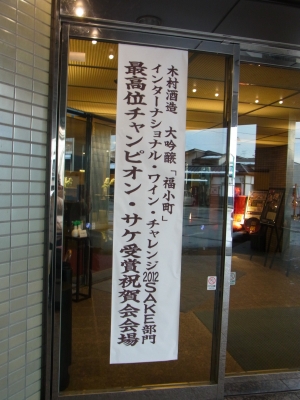 木村酒造　大吟醸「福小町」
インターナショナル・ワイン・チャレンジ2012SAKE部門
最高位チャンピオン・サケ受賞祝賀会会場